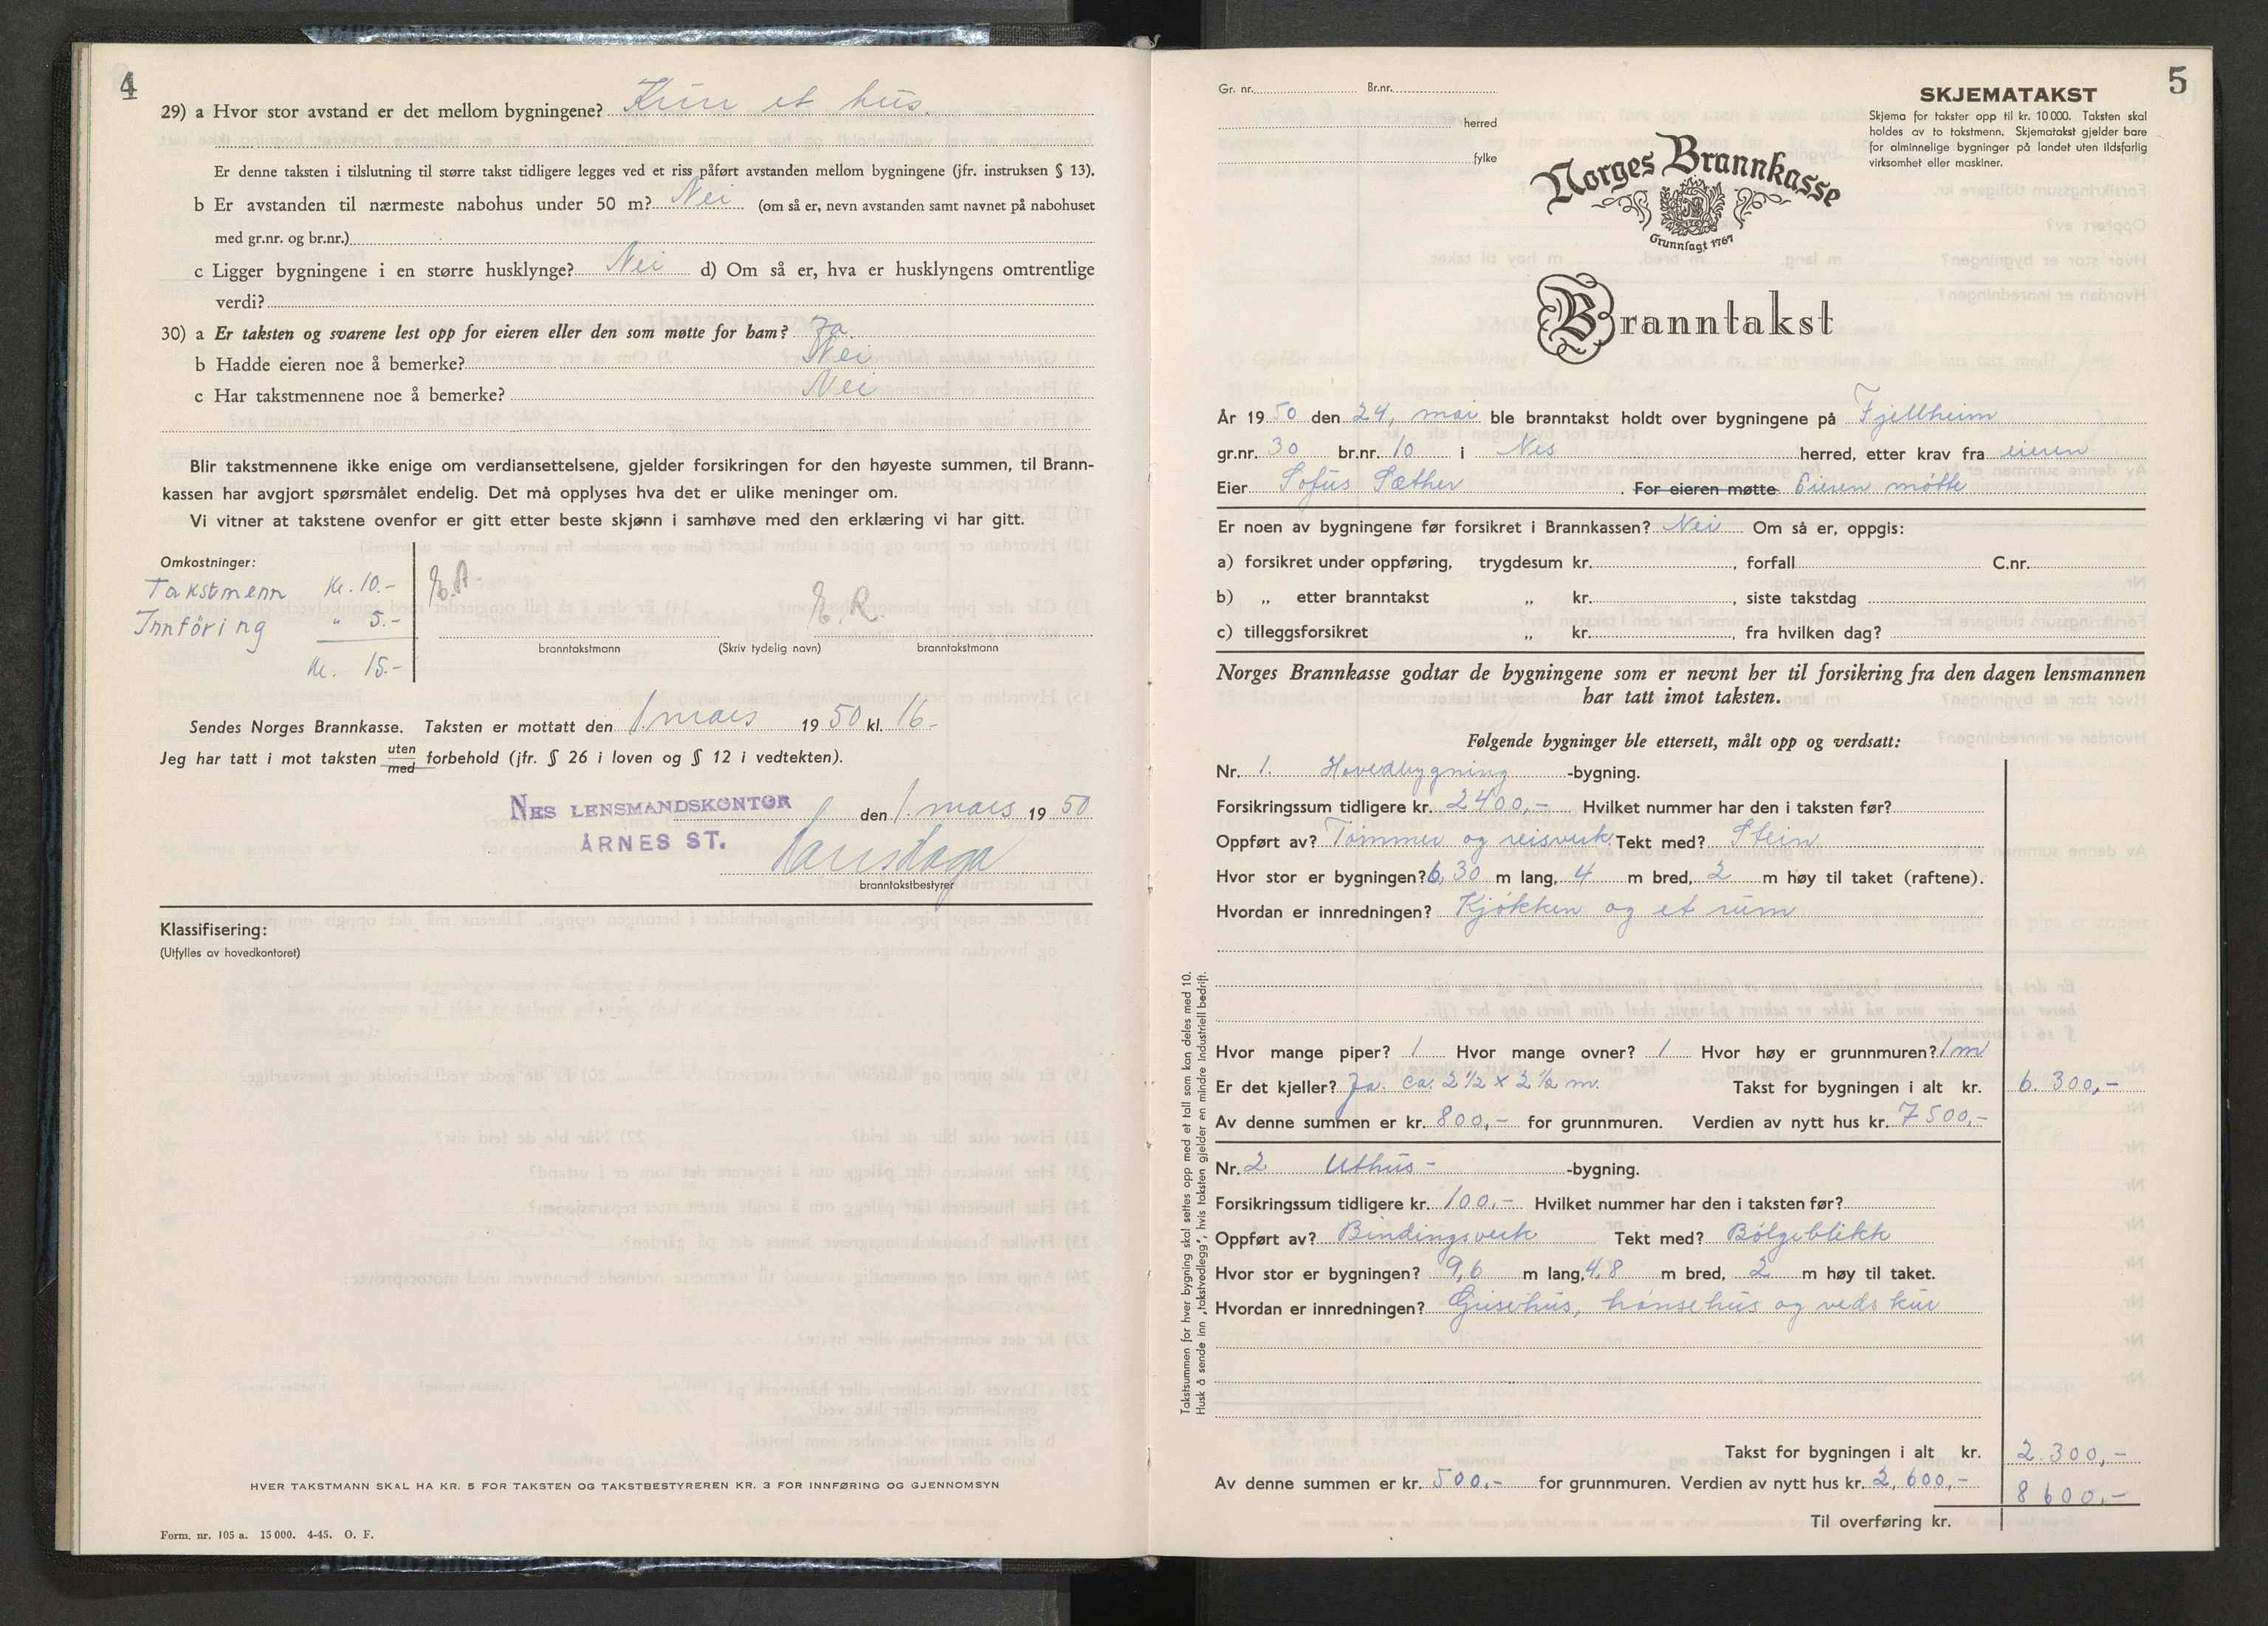 4
29) a Hvor stor avstand er det mellom bygningene? Kun et hus
Er denne taksten i tilslutning til større takst tidligere legges ved et riss påført avstanden mellom bygningene (jfr. instruksen § 13).
b Er avstanden til nærmeste nabohus under 50 m? Nei (om så er, nevn avstanden samt navnet på nabohuset
med gr.nr. og br.nr.)
c Ligger bygningene i en større husklynge? Nei d) Om så er, hva er husklyngens omtrentlige
verdi?
30) a Er taksten og svarene lest opp for eieren eller den som møtte for ham? Ja
b Hadde eieren noe å bemerke? Nei
c Har takstmennene noe å bemerke? Nei
Blir takstmennene ikke enige om verdiansettelsene, gjelder forsikringen for den høyeste summen, til Brann-
kassen har avgjort spørsmålet endelig. Det må opplyses hva det er ulike meninger om.
Vi vitner at takstene ovenfor er gitt etter beste skjønn i samhøve med den erklæring vi har gitt.
Omkostninger:
Takstmenn Kr. 10.-
Innföring " 5.-
Kr. 15.-
E. R.
branntakstmann (Skriv tydelig navn) branntakstmann
Sendes Norges Brannkasse. Taksten er mottatt den 1. mars 1950 kl. 16.-
Jeg har tatt i mot taksten uten med forbehold (jfr. § 26 i loven og § 12 i vedtekten).
NES LENSMANDSKONTOR den 1. mars 1950
ÅRNES ST.
branntakstbestyrer
Klassifisering:
(Utfylles av hovedkontoret)
HVER TAKSTMANN SKAL HA KR. 5 FOR TAKSTEN OG TAKSTBESTYREREN KR. 3 FOR INNFØRING OG GJENNOMSYN
Form. nr. 105 a. 15 000. 4-45. O. F.
5
Gr. nr. Br.nr.
herred
fylke
SKJEMATAKST
Skjema for takster opp til kr. 10 000. Taksten skal
holdes av to takstmenn. Skjematakst gjelder bare
for alminnelige bygninger på landet uten ildsfarlig
virksomhet eller maskiner.
Norges Brannkasse
Grunnlagt 1767
Branntakst
År 1950 den 24, mai ble branntakst holdt over bygningene på Fjellheim
gr.nr. 30 br.nr. 10 i Nes herred, etter krav fra eieren
Eier Sofus Sæther . For eieren møtte Eieren møtte
Er noen av bygningene før forsikret i Brannkassen? Nei Om så er, oppgis:
a) forsikret under oppføring, trygdesum kr. , forfall C.nr.
b) „ etter branntakst „ kr. , siste takstdag
c) tilleggsforsikret „ kr. , fra hvilken dag?
Norges Brannkasse godtar de bygningene som er nevnt her til forsikring fra den dagen lensmannen
har tatt imot taksten.
Følgende bygninger ble ettersett, målt opp og verdsatt:
Nr. 1. Hovedbygning -bygning.
Forsikringssum tidligere kr. 2400,- Hvilket nummer har den i taksten før?
Oppført av? Tömmer og reisverk Tekt med? Stein
Hvor stor er bygningen? 6,30 m lang, 4 m bred, 2 m høy til taket (raftene).
Hvordan er innredningen? Kjökken og et rum
Hvor mange piper? 1 Hvor mange ovner? 1 Hvor høy er grunnmuren? 1 m
Er det kjeller? Ja. ca. 2 1/2 x 2 1/2 m. Takst for bygningen i alt kr. 6.300,-
Av denne summen er kr. 800,- for grunnmuren. Verdien av nytt hus kr. 7500,-
Nr. 2 Uthus- -bygning.
Forsikringssum tidligere kr. 100,- Hvilket nummer har den i taksten før?
Oppført av? Bindingsverk Tekt med? Bölgeblikk
Hvor stor er bygningen? 9,6 m lang, 4,8 m bred, 2 m høy til taket.
Hvordan er innredningen? Grisehus, hönsehus og vedskur
Takst for bygningen i alt kr. 2.300,-
Av denne summen er kr. 500,- for grunnmuren. Verdien av nytt hus kr. 2,600,-
8600,-
Til overføring kr.
Takstsummen for hver bygning skal settes opp med et tall som kan deles med 10.
Husk å sende inn „takstvedlegg”, hvis taksten gjelder en mindre industriell bedrift.